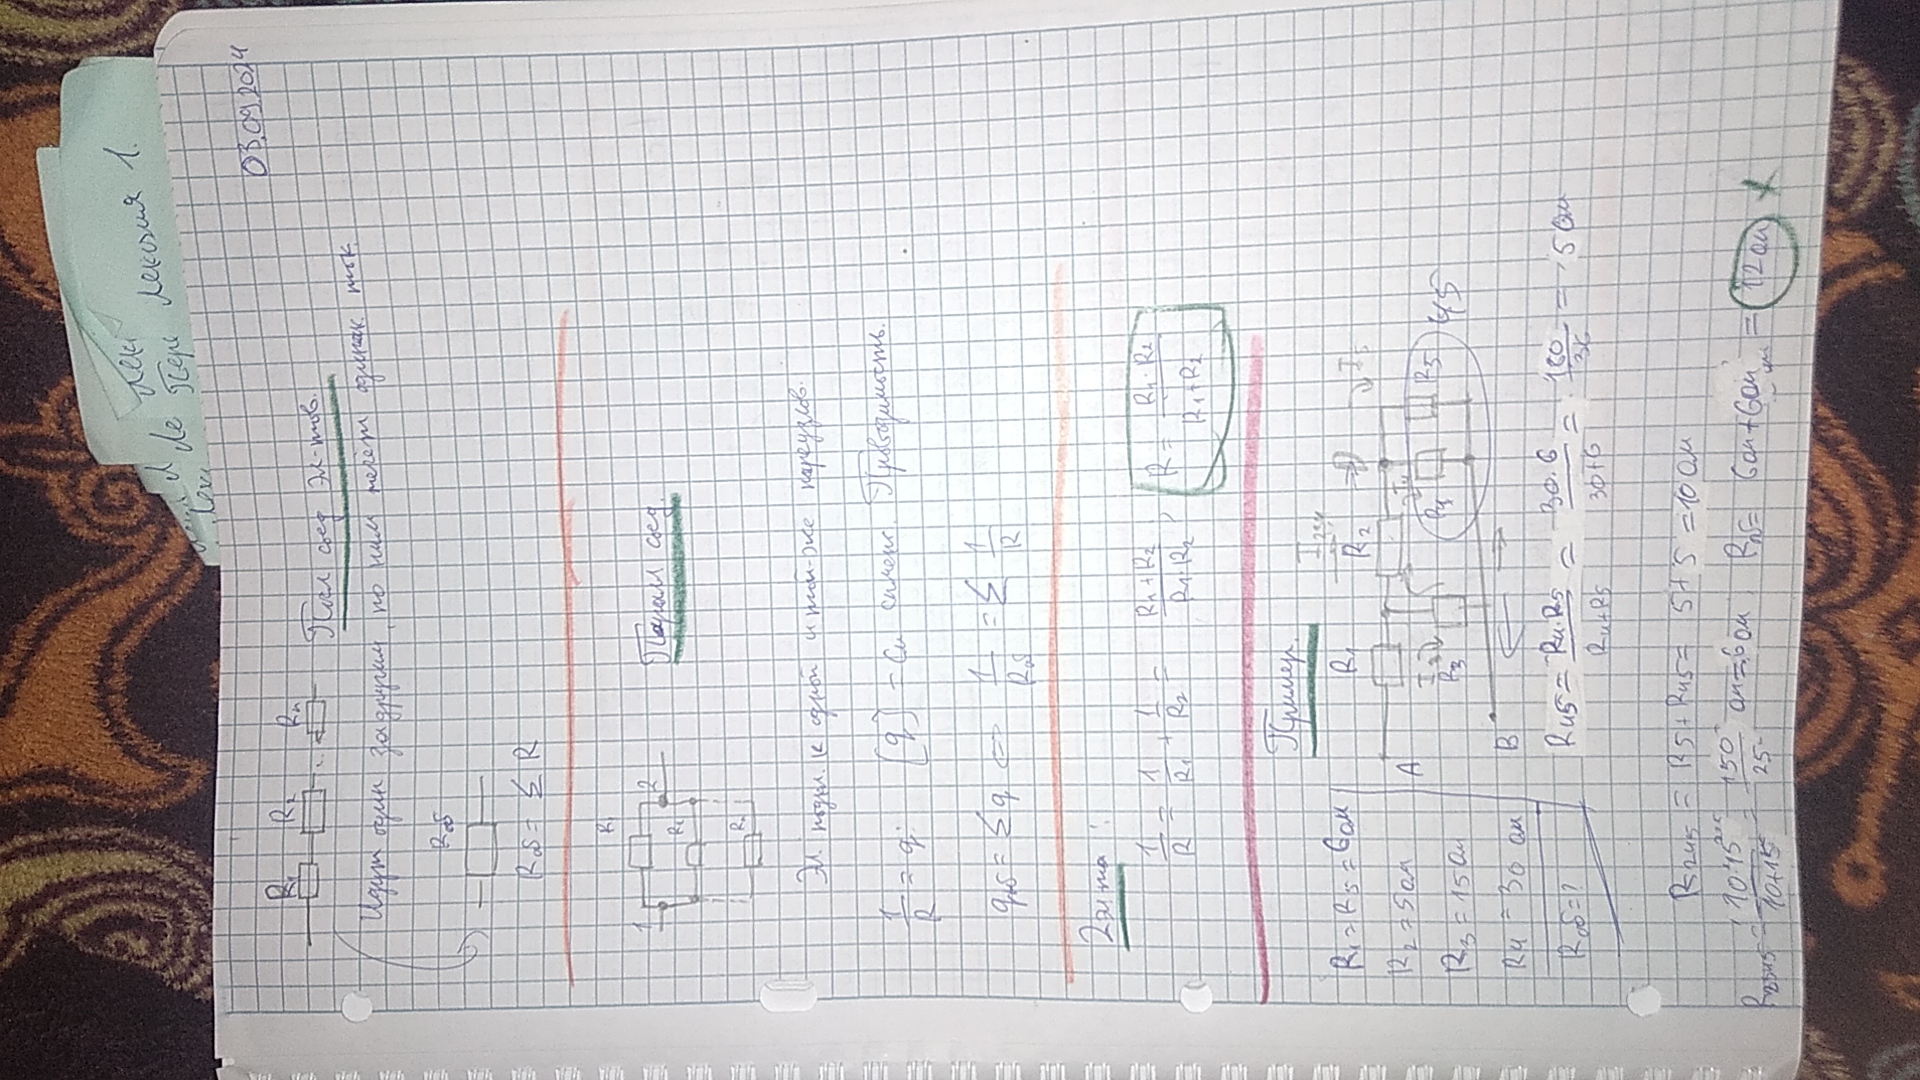 Лекция 1.
Лек
Ле Пере
03.09.2024
R₁ R₂ Rn
Посл соед Эл-тов.
Идут один за другим, по ним течёт одинак. ток.
Rоб
Rоб = Σ R
R₁
1 2
Паралл соед.
Эл. подкл. к одной и той-же паре узлов.
1/R = q; [q] - См сименс. Проводимость.
qоб = Σq ⇔ 1/Rоб = Σ 1/R
2 эл-та:
1/R = 1/R₁ + 1/R₂ = (R₁+R₂)/(R₁·R₂), R = (R₁·R₂)/(R₁+R₂)
Пример.
R₁ = R₅ = 6 ом
R₂ = 5 ом
R₃ = 15 ом
R₄ = 30 ом
Rоб = ?
R₁ R₂ I₅
A I₃ I₄
R₃ R₄ R₅ 45
B
R₄₅ = (R₄·R₅)/(R₄+R₅) = (30·6)/(30+6) = 180/36 = 5 ом
R₂₄₅ = R₅ + R₄₅ = 5+5 = 10 ом
R₂₃₄₅ = (10·15)/(10+15) = 150/25 ом = 6 ом; Rоб = 6 ом + 6 ом = 12 ом